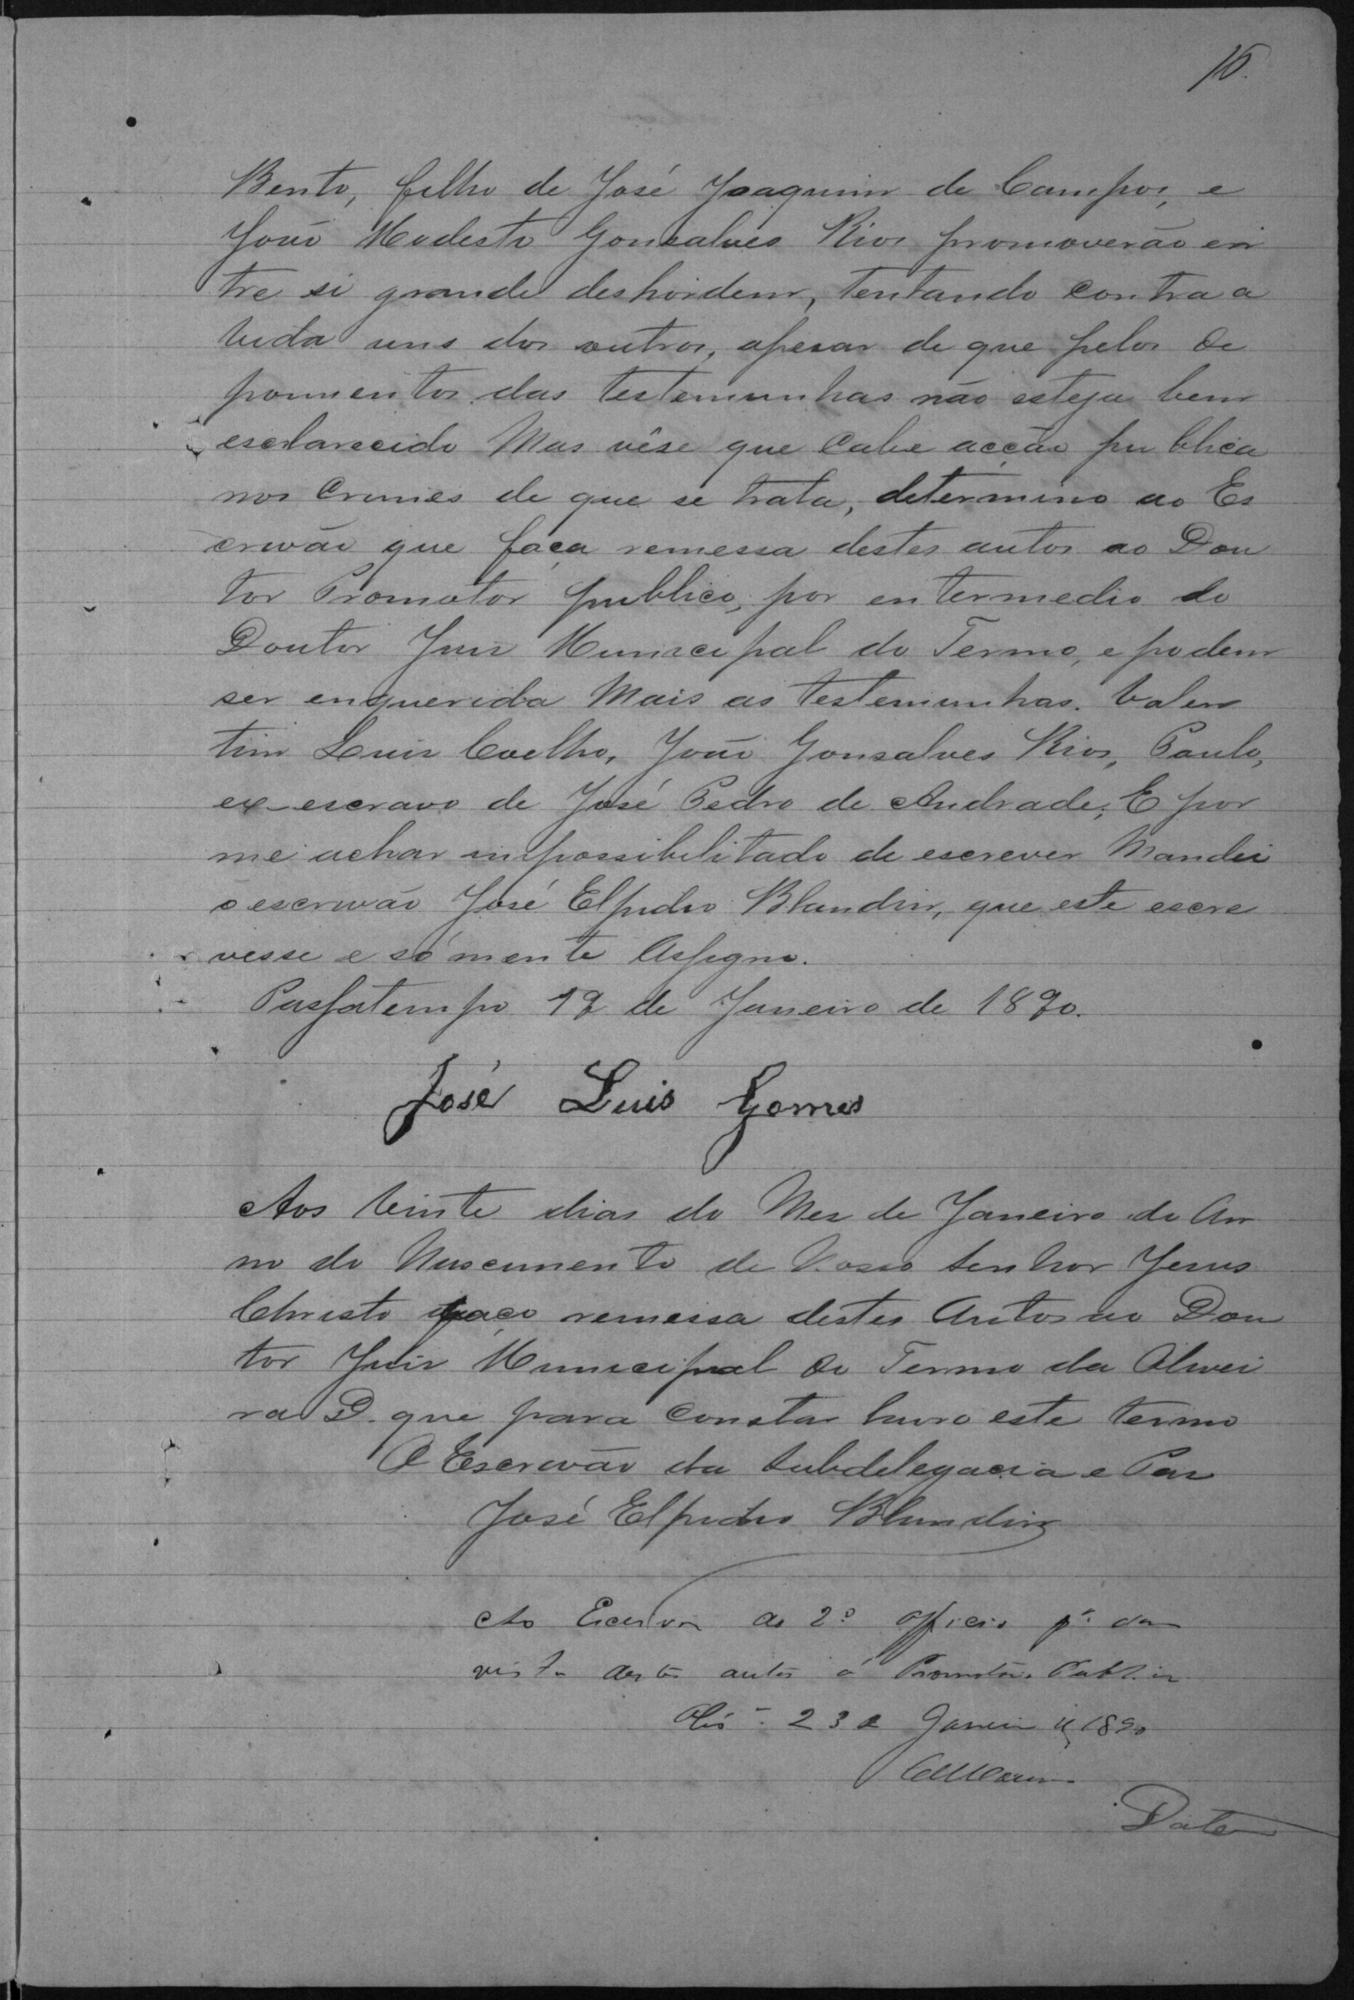 16.
Bento, filho de José Joaquim de Campos, e
João Modesto Gonsalves Rios promoverão en
tre si grande deshordem, tentando contra a
vida uns dos outros, apesar de que pelos de
poimentos das testemunhas não esteja bem
esclarecido Mas vêse que cabe acção publica
nos crimes de que se trata, determino ao Es
crivão que faça remessa destes autos ao Dou
tor Promotor publico, por entermedio do
Doutor Juiz Municipal do Termo, e podem
ser enquerida Mais as testemunhas. Valen
tim Luiz Coelho, João Gonsalves Rios, Paulo,
ex-escravo de José Pedro de Andrade; E por
me achar impossibilitado de escrever Mandei
o escrivão José Elpidio Blandin, que este escre
vesse e sómente Assigno.
Passatempo 19 de Janeiro de 1890.
José Luis Gomes
Aos vinte dias do Mez de Janeiro do An
no do Nascimento de Nosso Senhor Jesus
Christo faço remessa destes Autos ao Dou
tor Juiz Municipal do Termo da Olivei
ra D. que para constar lavro este termo
O Escrivão da Subdelegacia e Paz
José Elpidio Blandin
Ao Escrivão do 2º officio pª dar
vista destes autos o Promotor Publico
23 de Janeiro de 1890
Data